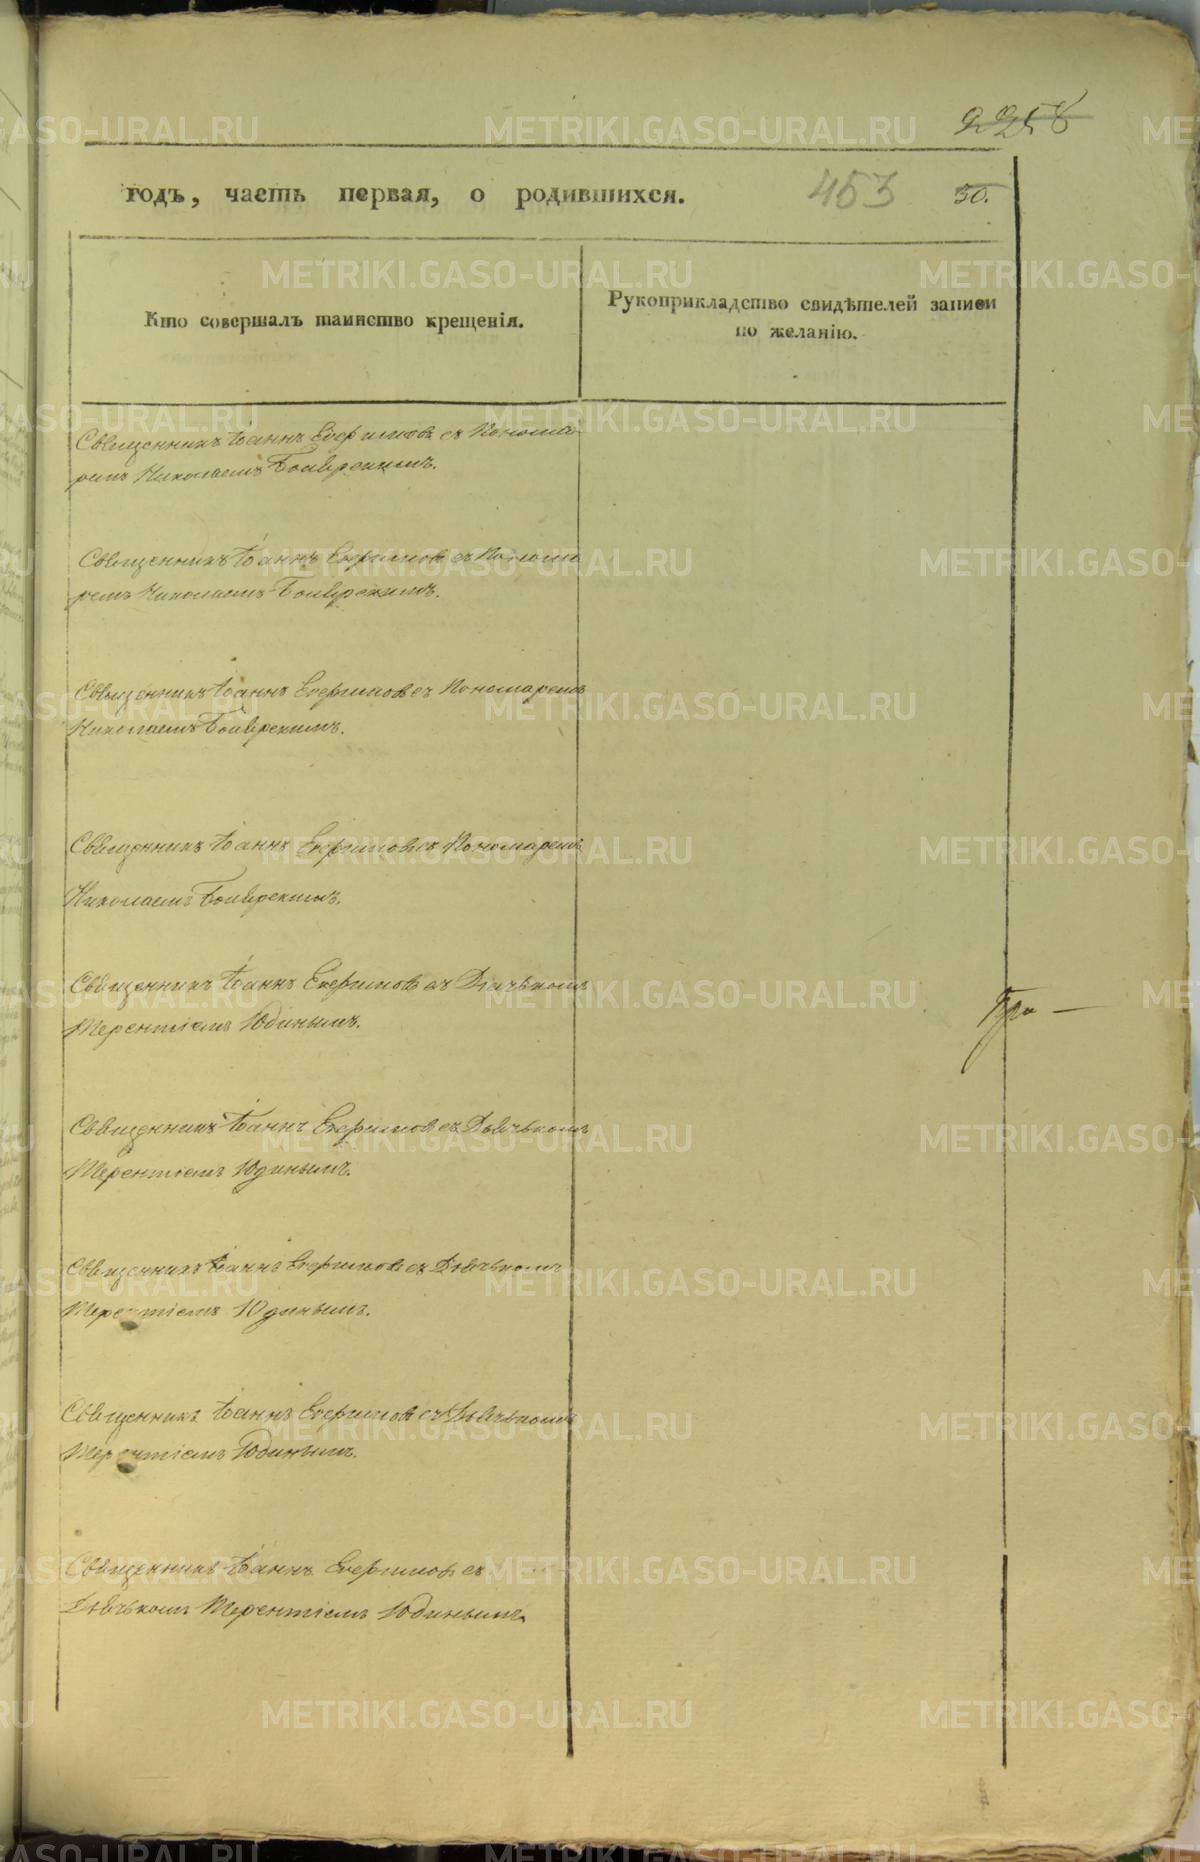 2258
годъ, часть первая, о родившихся.
453
30.
Кто совершалъ таинство крещенія.
Рукоприкладство свидѣтелей записи
по желанію.
Священникъ Іоаннъ Ефимовъ съ Понома-
ремъ Николаемъ
Священникъ Іоаннъ Ефимовъ съ Понома
ремъ Николаемъ
Священникъ Іоаннъ Ефимовъ съ Пономаремъ
Николаемъ
Священникъ Іоаннъ Ефимовъ съ Пономаремъ
Николаемъ
Священникъ Іоаннъ Ефимовъ съ Дьячькомъ
Терентіемъ Юдинымъ.
Священникъ Іоаннъ Ефимовъ съ Дьячькомъ
Терентіемъ Юдинымъ.
Священникъ Іоаннъ Ефимовъ съ Дьячькомъ
Терентіемъ Юдинымъ.
Священникъ Іоаннъ Ефимовъ съ Дьячькомъ
Терентіемъ Юдинымъ.
Священникъ Іоаннъ Ефимовъ съ
Дьячькомъ Терентіемъ Юдинымъ.
METRIKI.GASO-URAL.RU